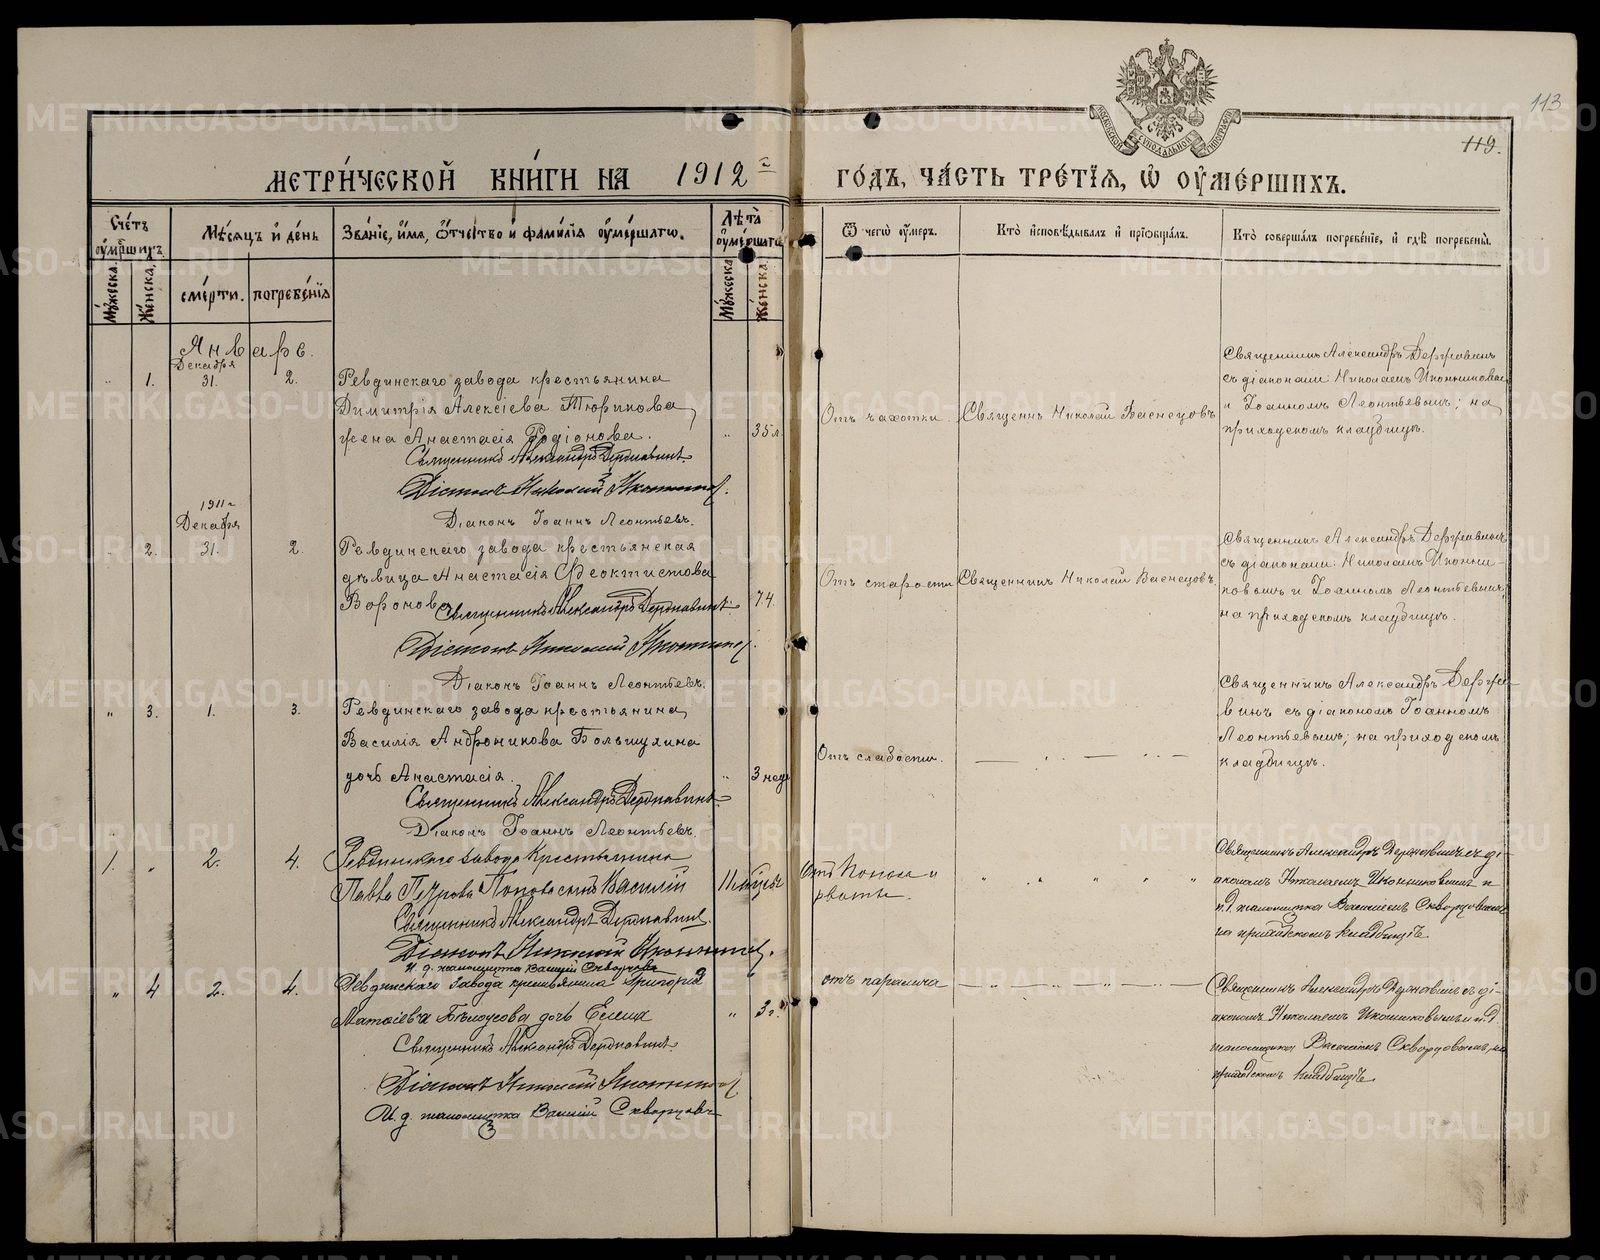 113
119.
МОСКОВСКОЙ СУНОДАЛЬНОЙ ТИПОГРАФІИ
МЕТРИ́ЧЕСКОЙ КНИ́ГИ НА 1912 ГО́ДЪ, ЧА́СТЬ ТРЕ́ТІѦ, Ѡ ОУМЕ́РШИХЪ.
Сче́тъ оуме́ршихъ.
Му́жеска.
Же́нска.
Мѣ́сѧцъ и де́нь
сме́рти.
погребе́нїѧ
Зва́нїе, и́мѧ, ѻ́тчество и фами́лїѧ оуме́ршагѡ.
Лѣ́та оуме́ршагѡ
Му́жеска
Же́нска.
Ѿ чегѡ̀ оу́меръ.
Кто̀ и҆сповѣ́дывалъ и҆ прїѡбща́лъ.
Кто̀ соверша́лъ погребе́нїе, и҆ гдѣ̀ погребены̀.
Январь.
Декабря
1. 31. 2.
Ревдинскаго завода крестьянина
Димитрія Алексіева Тюрикова,
жена Анастасія Родіонова. 35 л.
Священникъ Александръ Державинъ.
Діаконъ Николай Иконниковъ.
Діаконъ Іоаннъ Леонтьевъ.
Отъ чахотки.
Священ. Николай Васнецовъ
Священникъ Александръ Державинъ
съ діаконами: Николаемъ Иконниковымъ
и Іоанномъ Леонтьевымъ; на
приходскомъ кладбищѣ.
1911 г.
Декабря
2. 31. 2.
Ревдинскаго завода крестьянская
дѣвица Анастасія Феоктистова
Воронова 74.
Священникъ Александръ Державинъ.
Діаконъ Николай Иконниковъ.
Діаконъ Іоаннъ Леонтьевъ.
Отъ старости
Священникъ Николай Васнецовъ.
Священникъ Александръ Державинъ
съ діаконами: Николаемъ Иконни-
ковымъ и Іоанномъ Леонтьевымъ;
на приходскомъ кладбищѣ.
„ 3. 1. 3.
Ревдинскаго завода крестьянина,
Василія Андроникова Большухина
дочь Анастасія. „ 3 нед.
Священникъ Александръ Державинъ
Діаконъ Іоаннъ Леонтьевъ.
Отъ слабости.
Священникъ Александръ Держа-
винъ съ діакономъ Іоанномъ
Леонтьевымъ; на приходскомъ
кладбищѣ.
1. „ 2. 4.
Ревдинскаго завода Крестьянина
Павла Петрова Попова сынъ Василій
Священникъ Александръ Державинъ.
Діаконъ Николай Иконниковъ.
И. д. псаломщика Василій Скворцовъ
Отъ поноса и
рвоты.
Священникъ Александръ Державинъ съ ді-
акономъ Николаемъ Иконниковымъ и
и. д. псаломщика Василіемъ Скворцовымъ
на приходскомъ кладбищѣ.
„ 4 2. 4.
Ревдинскаго завода крестьянина Григорія
Матвіева Бѣлоусова дочь Елена „ 3 г.
Священникъ Александръ Державинъ.
Діаконъ Николай Иконниковъ
И. д. псаломщика Василій Скворцовъ
отъ паралича
Священникъ Александръ Державинъ съ ді-
акономъ Николаемъ Иконниковымъ и и. д.
псаломщика Василіемъ Скворцовымъ, на
приходскомъ кладбищѣ.
METRIKI.GASO-URAL.RU